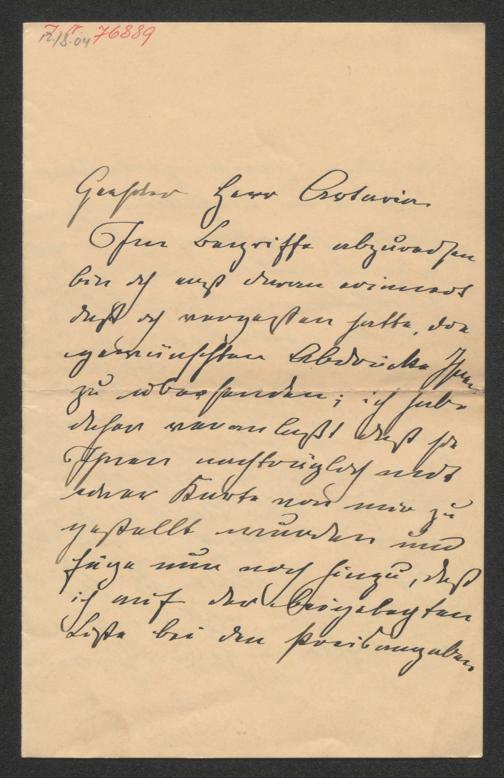 I.N. 76889
12/8.04
Geehrter Herr Artaria
Im Begriffe abzureisen
bin ich erst daran erinnert
daß ich vergessen hatte, die
gewünschten Abdrücke Ihnen
zu übersenden; ich habe
daher veranlaßt daß sie
Ihnen nachträglich mit
einer Karte von mir zu
gestellt wurden und
füge nur noch hinzu, daß
ich auf der beigelegten
Liste bei den Preisangaben